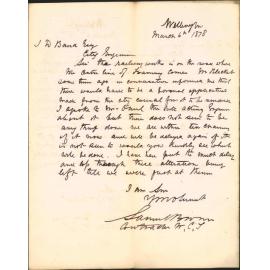 Wellington
March 6th 1878
J D Baird Esq
City Engineer
Sir the railway works is on the road where
the water line of tramway comes Mr
some time ago in conversation informed me that
there would have to be a formal application
made from the city council for it to be
I spoke to Mr the late acting Engineer
about it but there does not seem to be
any thing done we are within ten
of it now and we be delayed again if it
is not seen to would you kindly see which
to be done. I have
through these alteration being
left till we were just at them
I am Sir
Your obt Servt
Samuel Brown
Contractor W.C.T